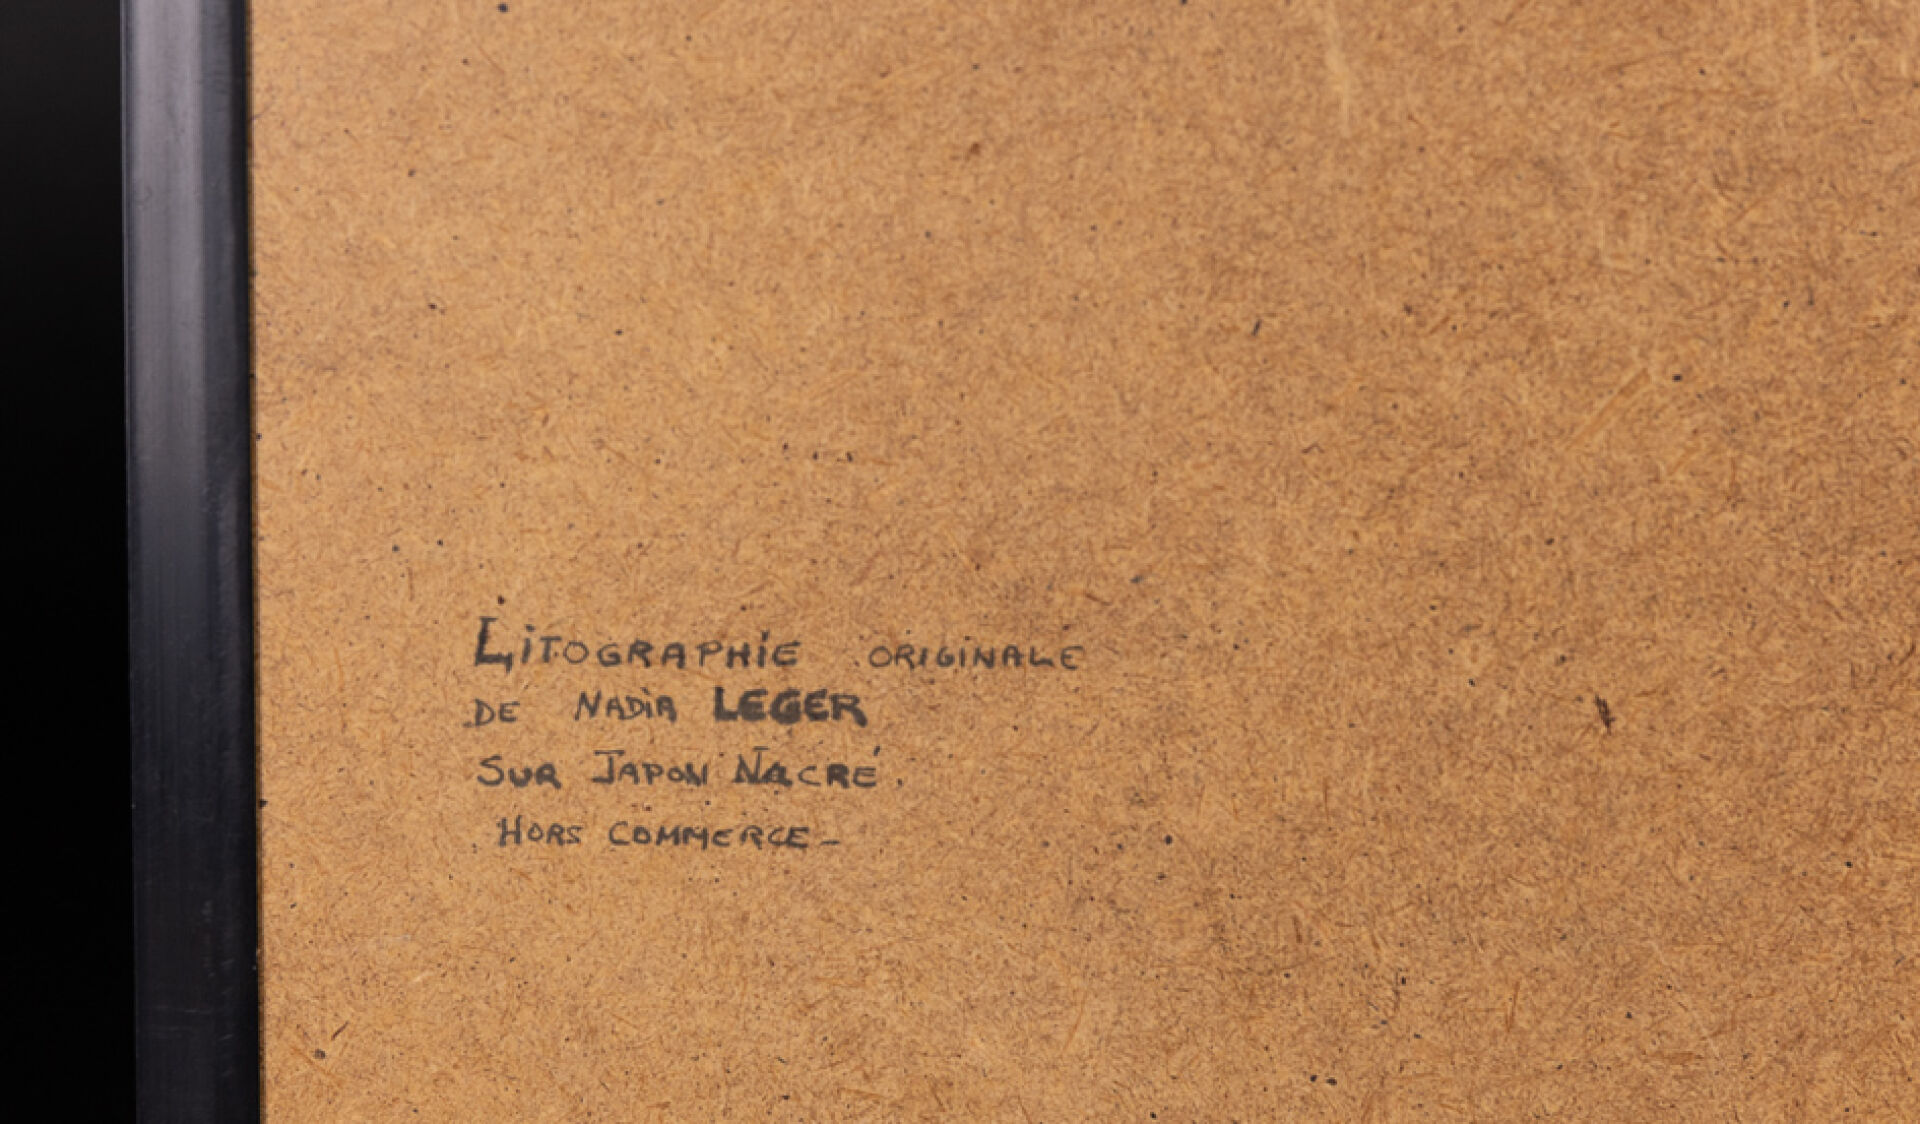 LiTOGRAPHiE ORIGINALE
DE NADiA LEGER
SUR JAPON NaCRÉ.
HORS COMMERCE -